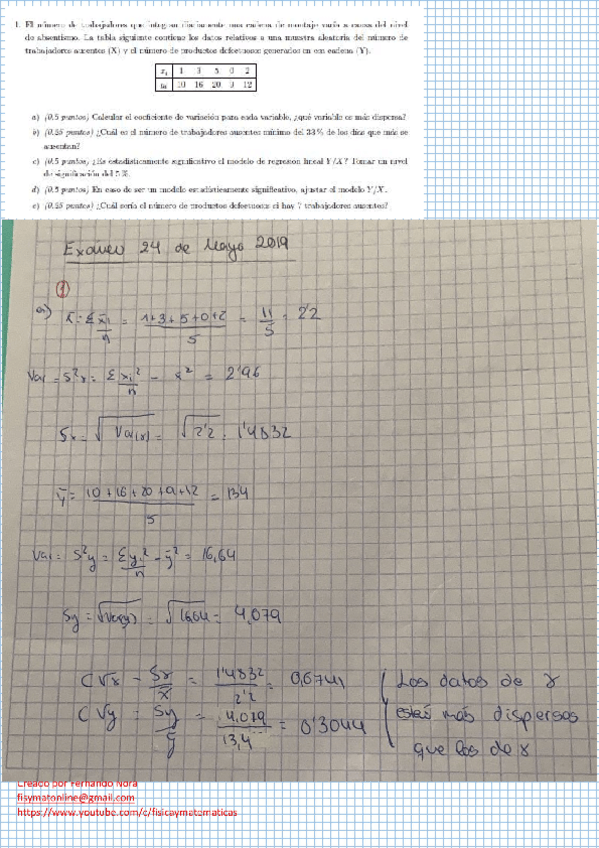 1. El número de trabajadores que integran diariamente una cadena de montaje varía a causa del nivel
de absentismo. La tabla siguiente contiene los datos relativos a una muestra aleatoria del número de
trabajadores ausentes (X) y el número de productos defectuosos generados en esa cadena (Y).
xi 1 3 5 0 2
yi 10 16 20 9 12
a) (0.5 puntos) Calcular el coeficiente de variación para cada variable, ¿qué variable es más dispersa?
b) (0.25 puntos) ¿Cuál es el número de trabajadores ausentes mínimo del 33% de los días que más se
ausentan?
c) (0.5 puntos) ¿Es estadísticamente significativo el modelo de regresión lineal Y/X? Tomar un nivel
de significación del 5%.
d) (0.5 puntos) En caso de ser un modelo estadísticamente significativo, ajustar el modelo Y/X.
e) (0.25 puntos) ¿Cuál sería el número de productos defectuosos si hay 7 trabajadores ausentes?
Examen 24 de Mayo 2019
1
a) x̄ = Σ xi / n = 1+3+5+0+2 / 5 = 11 / 5 = 2'2
Var = S²x = Σ xi² / n - x̄² = 2'96
Sx = √Var(x) = √2'2 = 1'4832
ȳ = 10+16+20+9+12 / 5 = 13'4
Var = S²y = Σ yi² / n - ȳ² = 16,64
Sy = √Var(y) = √16,64 = 4,079
CVx = Sx / x̄ = 1'4832 / 2'2 = 0,6741
CVy = Sy / ȳ = 4,079 / 13,4 = 0'3044
Los datos de x
más dispersos
que los de
Creado por Fernando Nora
fisymatonline@gmail.com
https://www.youtube.com/c/fisicaymatematicas